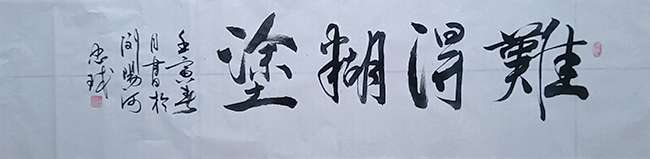 難得糊塗
壬寅春
月書於
浏陽河
忠球